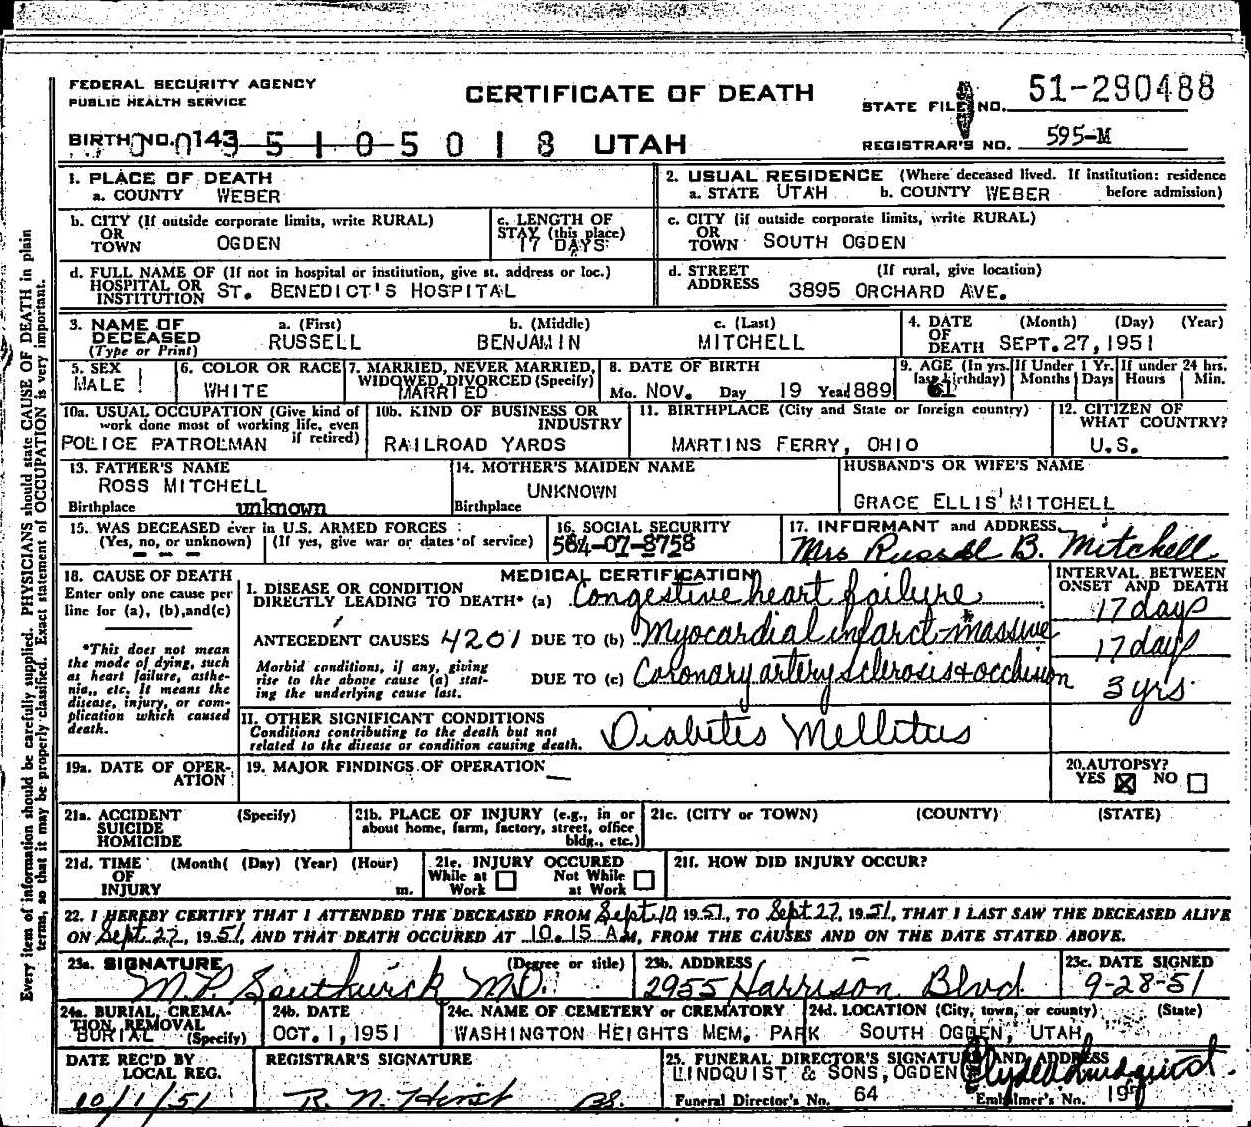 FEDERAL SECURITY AGENCY
PUBLIC HEALTH SERVICE
CERTIFICATE OF DEATH
STATE FILE NO. 51-290488
BIRTH NO. 143 5105018 UTAH
REGISTRAR'S NO. 595-M
1. PLACE OF DEATH
a. COUNTY WEBER
2. USUAL RESIDENCE (Where deceased lived. If institution: residence before admission)
a. STATE UTAH b. COUNTY WEBER
b. CITY (If outside corporate limits, write RURAL)
OR TOWN OGDEN
c. LENGTH OF STAY (this place)
17 DAYS
c. CITY (if outside corporate limits, write RURAL)
OR TOWN SOUTH OGDEN
d. FULL NAME OF (If not in hospital or institution, give st. address or loc.)
HOSPITAL OR INSTITUTION ST. BENEDICT'S HOSPITAL
d. STREET ADDRESS (If rural, give location)
3895 ORCHARD AVE.
3. NAME OF DECEASED (Type or Print)
a. (First) b. (Middle) c. (Last)
RUSSELL BENJAMIN MITCHELL
4. DATE OF DEATH (Month) (Day) (Year)
SEPT. 27, 1951
5. SEX
MALE
6. COLOR OR RACE
WHITE
7. MARRIED, NEVER MARRIED, WIDOWED, DIVORCED (Specify)
MARRIED
8. DATE OF BIRTH
Mo. NOV. Day 19 Year 1889
9. AGE (In yrs. last birthday)
61
If Under 1 Yr. Months Days
If under 24 hrs. Hours Min.
10a. USUAL OCCUPATION (Give kind of work done most of working life, even if retired)
POLICE PATROLMAN
10b. KIND OF BUSINESS OR INDUSTRY
RAILROAD YARDS
11. BIRTHPLACE (City and State or foreign country)
MARTINS FERRY, OHIO
12. CITIZEN OF WHAT COUNTRY?
U.S.
13. FATHER'S NAME
ROSS MITCHELL
Birthplace unknown
14. MOTHER'S MAIDEN NAME
UNKNOWN
Birthplace
HUSBAND'S OR WIFE'S NAME
GRACE ELLIS MITCHELL
15. WAS DECEASED ever in U.S. ARMED FORCES
(Yes, no, or unknown) (If yes, give war or dates of service)
- - -
16. SOCIAL SECURITY
564-07-8758
17. INFORMANT and ADDRESS
Mrs Russel B. Mitchell
18. CAUSE OF DEATH
Enter only one cause per line for (a), (b), and (c)
*This does not mean the mode of dying, such as heart failure, asthenia, etc. It means the disease, injury, or complication which caused death.
MEDICAL CERTIFICATION
INTERVAL BETWEEN ONSET AND DEATH
I. DISEASE OR CONDITION DIRECTLY LEADING TO DEATH* (a) Congestive heart failure 17 days
ANTECEDENT CAUSES 4201 DUE TO (b) Myocardial infarct-massive 17 days
Morbid conditions, if any, giving rise to the above cause (a) stating the underlying cause last.
DUE TO (c) Coronary artery sclerosis & occlusion 3 yrs.
II. OTHER SIGNIFICANT CONDITIONS
Conditions contributing to the death but not related to the disease or condition causing death.
Diabetes Mellitus
19a. DATE OF OPERATION
19. MAJOR FINDINGS OF OPERATION
20. AUTOPSY?
YES ☒ NO ☐
21a. ACCIDENT SUICIDE HOMICIDE (Specify)
21b. PLACE OF INJURY (e.g., in or about home, farm, factory, street, office bldg., etc.)
21c. (CITY or TOWN) (COUNTY) (STATE)
21d. TIME OF INJURY (Month( (Day) (Year) (Hour) m.
21e. INJURY OCCURED
While at Work ☐ Not While at Work ☐
21f. HOW DID INJURY OCCUR?
22. I HEREBY CERTIFY THAT I ATTENDED THE DECEASED FROM Sept. 10 1951, TO Sept 27, 1951, THAT I LAST SAW THE DECEASED ALIVE
ON Sept. 27, 1951, AND THAT DEATH OCCURED AT 10.15 A M, FROM THE CAUSES AND ON THE DATE STATED ABOVE.
23a. SIGNATURE (Degree or title)
M.P. Southwick M.D.
23b. ADDRESS
2955 Harrison Blvd.
23c. DATE SIGNED
9-28-51
24a. BURIAL, CREMATION, REMOVAL (Specify)
BURIAL
24b. DATE
OCT. 1, 1951
24c. NAME OF CEMETERY or CREMATORY
WASHINGTON HEIGHTS MEM. PARK
24d. LOCATION (City, town, or county) (State)
SOUTH OGDEN, UTAH
DATE REC'D BY LOCAL REG.
10/1/51
REGISTRAR'S SIGNATURE
R. N. Hirst
25. FUNERAL DIRECTOR'S SIGNATURE AND ADDRESS
LINDQUIST & SONS, OGDEN Clyde Lindquist.
Funeral Director's No. 64 Embalmer's No.
Every item of information should be carefully supplied. PHYSICIANS should state CAUSE OF DEATH in plain
terms, so that it may be properly classified. Exact statement of OCCUPATION is very important.